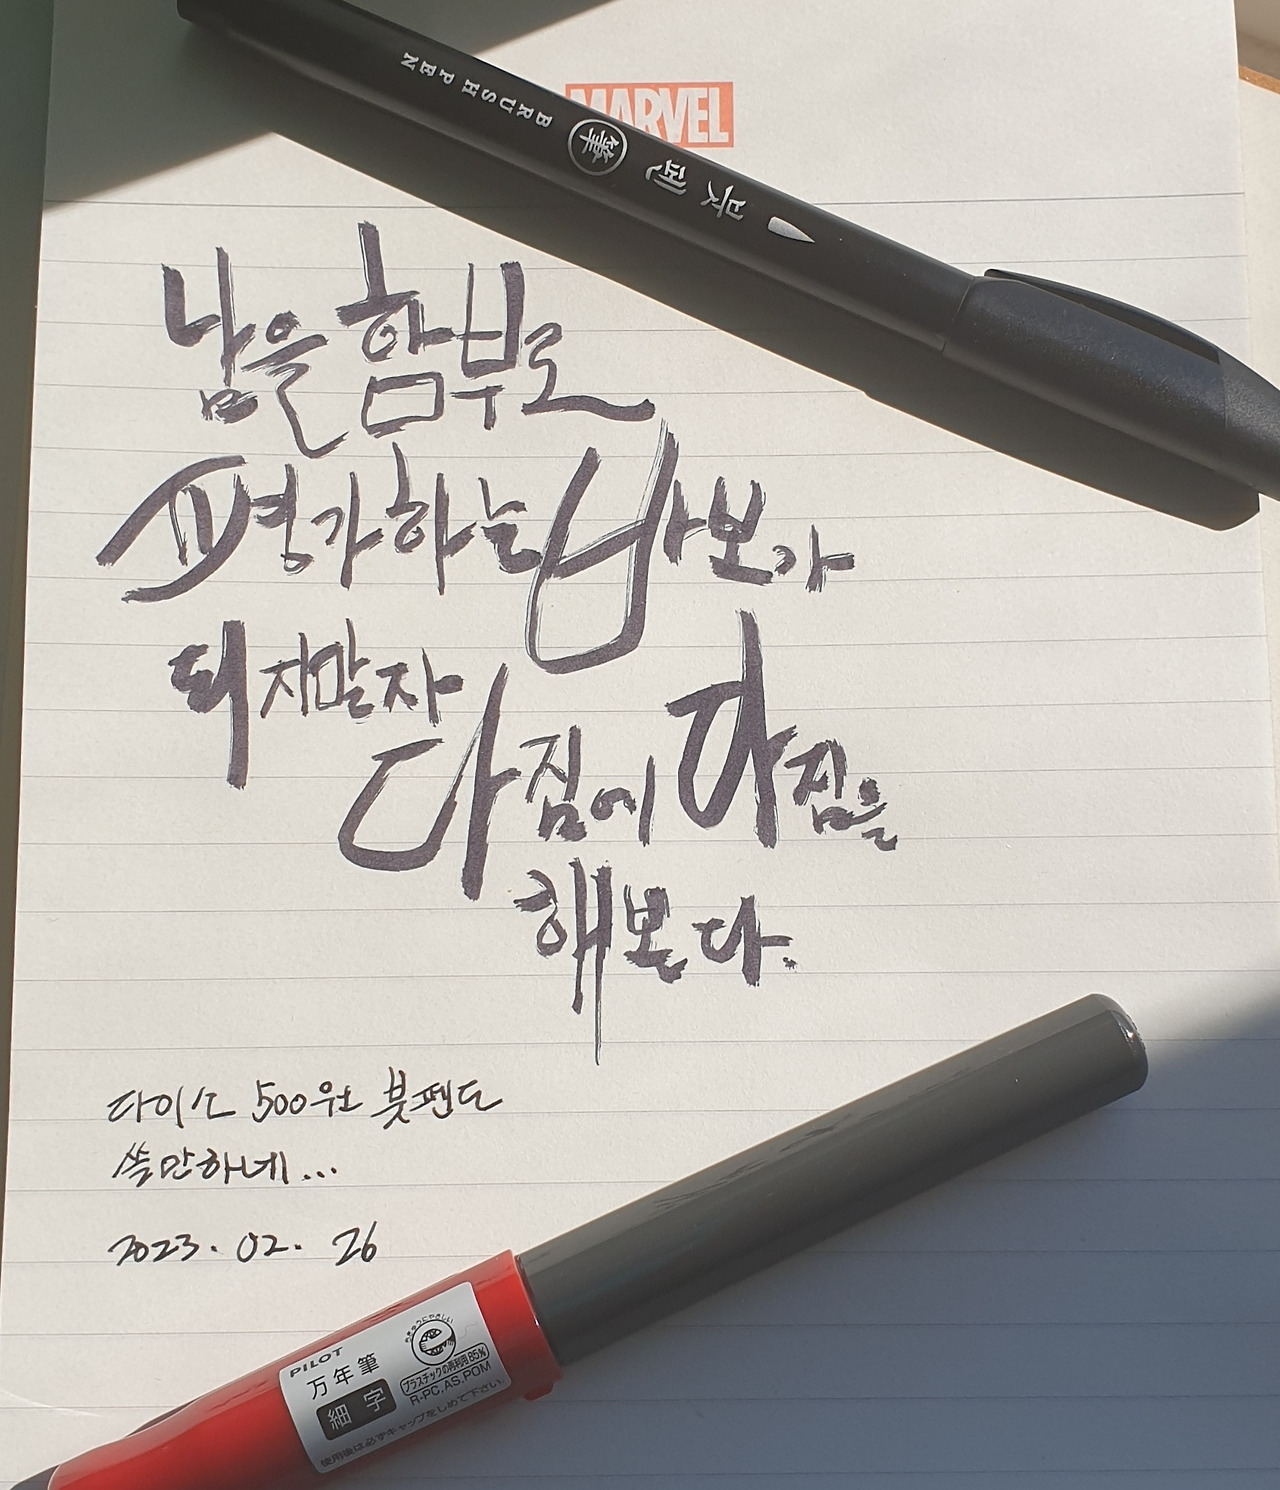 MARVEL
BRUSH PEN
筆
붓펜
남을 함부로
평가하는 바보가
되지말자
다짐에 다짐을
해본다.
다이소 500원 붓펜도
쓸만하네...
2023. 02. 26
PILOT
万年筆
細字
プラスチックの再利用85%
R-PC,AS,POM
使用後は必ずキャップをしめて下さい